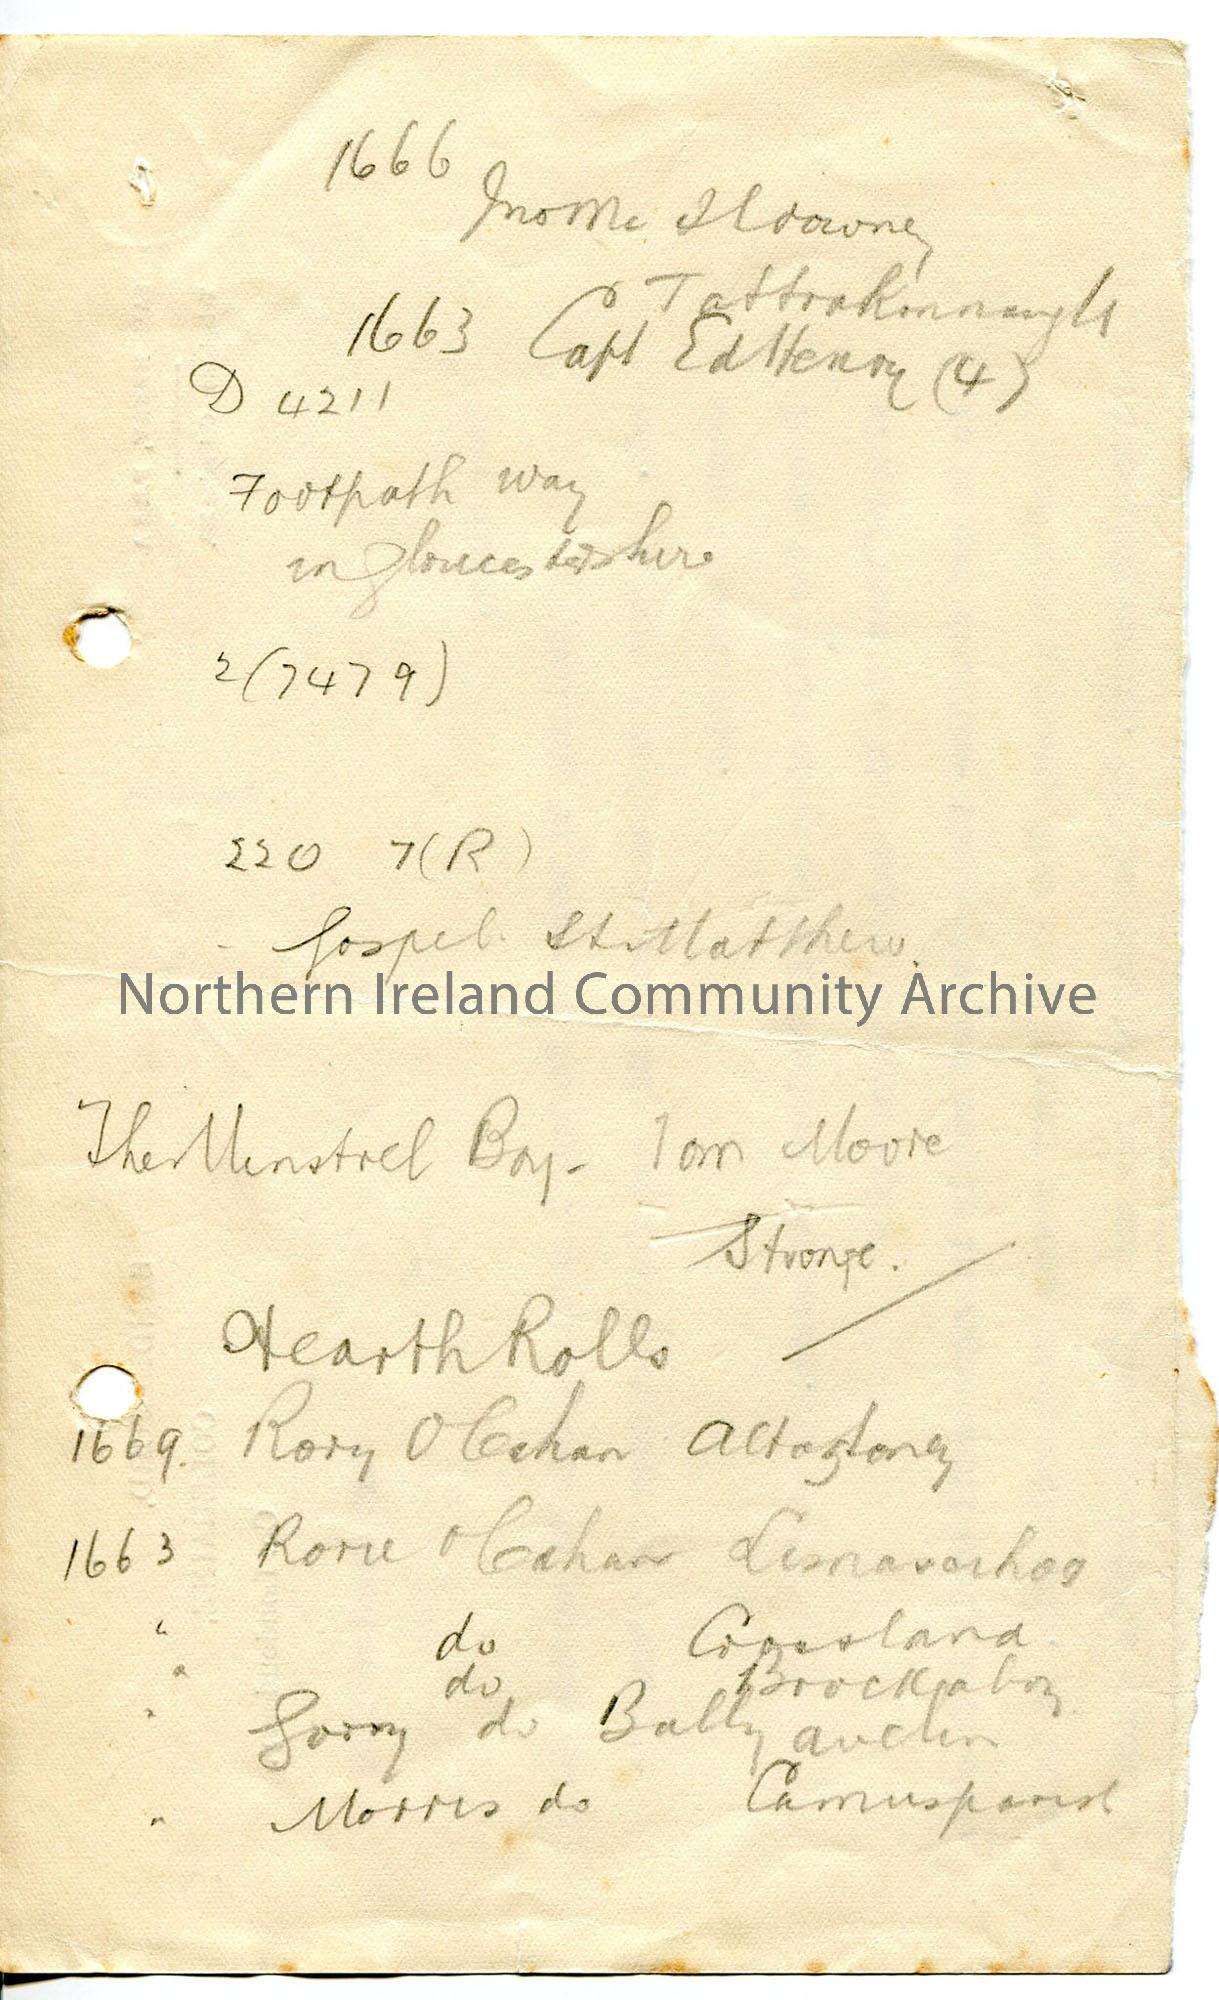 1666
Jno Mc Ildowney
1663 Capt Ed Henry (4)
D 4211
Footpath way
in Gloucestershire
2(7479)
220 7(R)
Gospel St Matthew.
Northern Ireland Community Archive
The Minstrel Boy - Tom Moore
Stronge.
Hearth Rolls
1669. Rory O Cahan Altagloney
1663 Rorie O Cahan
" do
" do
" Gorry do Bally
" Morris do Camusparish